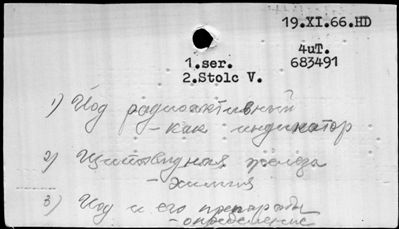 19.XI.66.HD
4uT.
1.ser. 683491
2.Stolc V.
1) Йод радиоактивный
- как индикатор
2) Щитовидная железа
- химия
3) Йод и его препараты
- определение